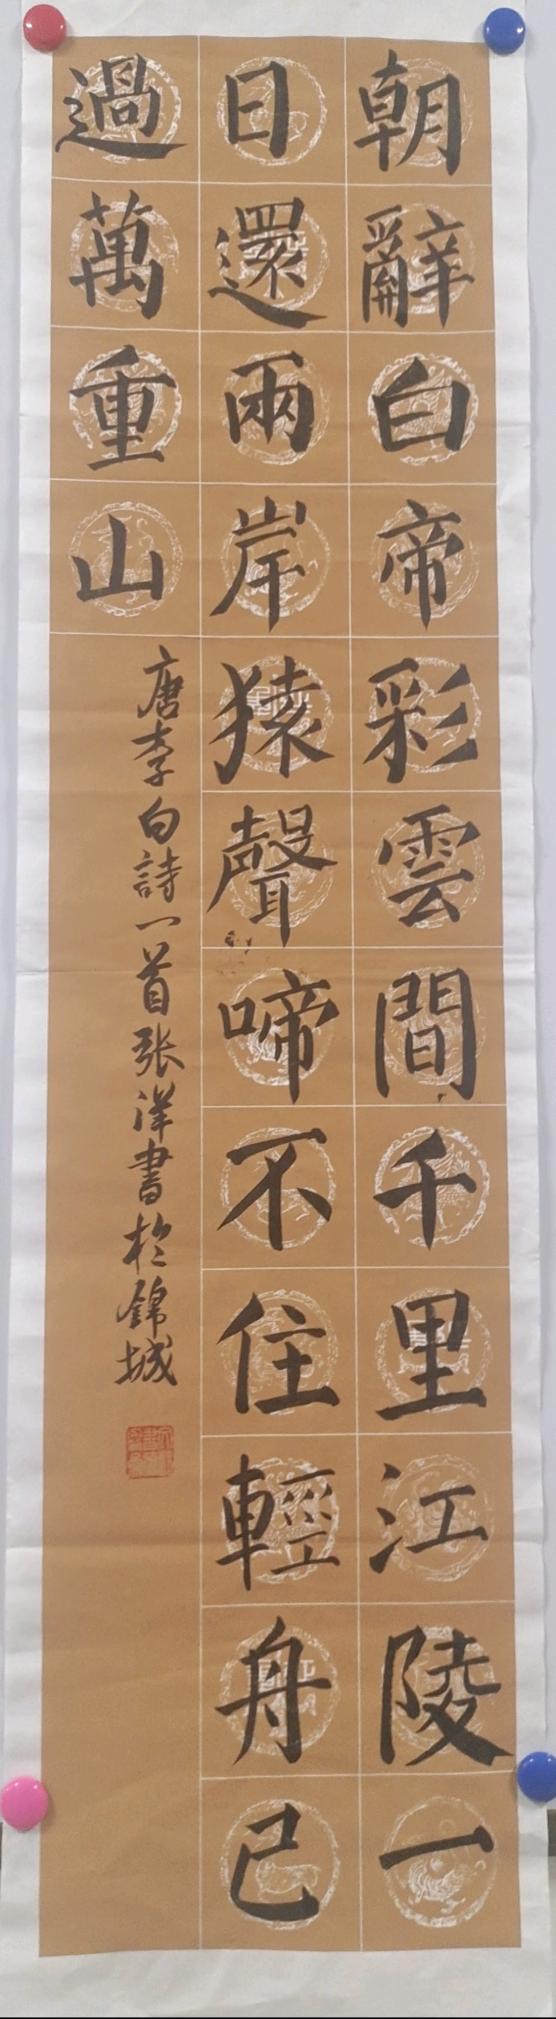 朝辭白帝彩雲間千里江陵一
日還兩岸猿聲啼不住輕舟已
過萬重山
唐李白詩一首張洋書於錦城